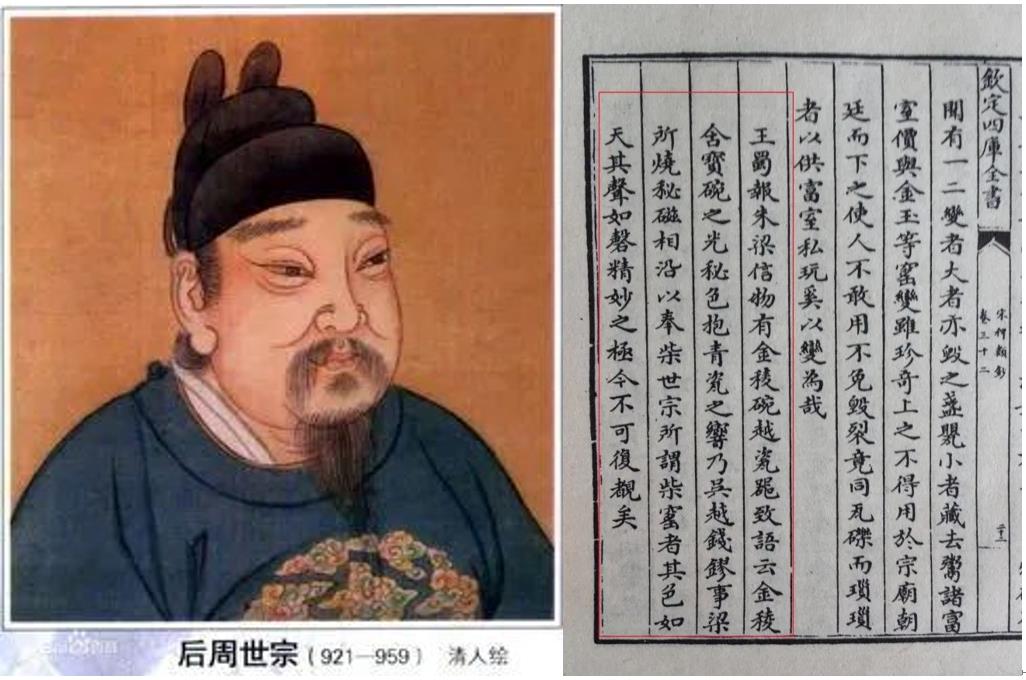 后周世宗（921—959） 清人绘
欽定四庫全書
宋稗類鈔
卷三十二
聞有一二變者大者亦毀之盞甖小者藏去鬻諸富
室價與金玉等窰變雖珍奇上之不得用於宗廟朝
廷而下之使人不敢用不免毀裂竟同瓦礫而瑣瑣
者以供富室私玩奚以變為哉
王蜀報朱梁信物有金稜碗越瓷器致語云金稜
舍寶碗之光秘色抱青瓷之響乃吳越錢鏐事梁
所燒秘磁相沿以奉柴世宗所謂柴窰者其色如
天其聲如磬精妙之極今不可復覩矣